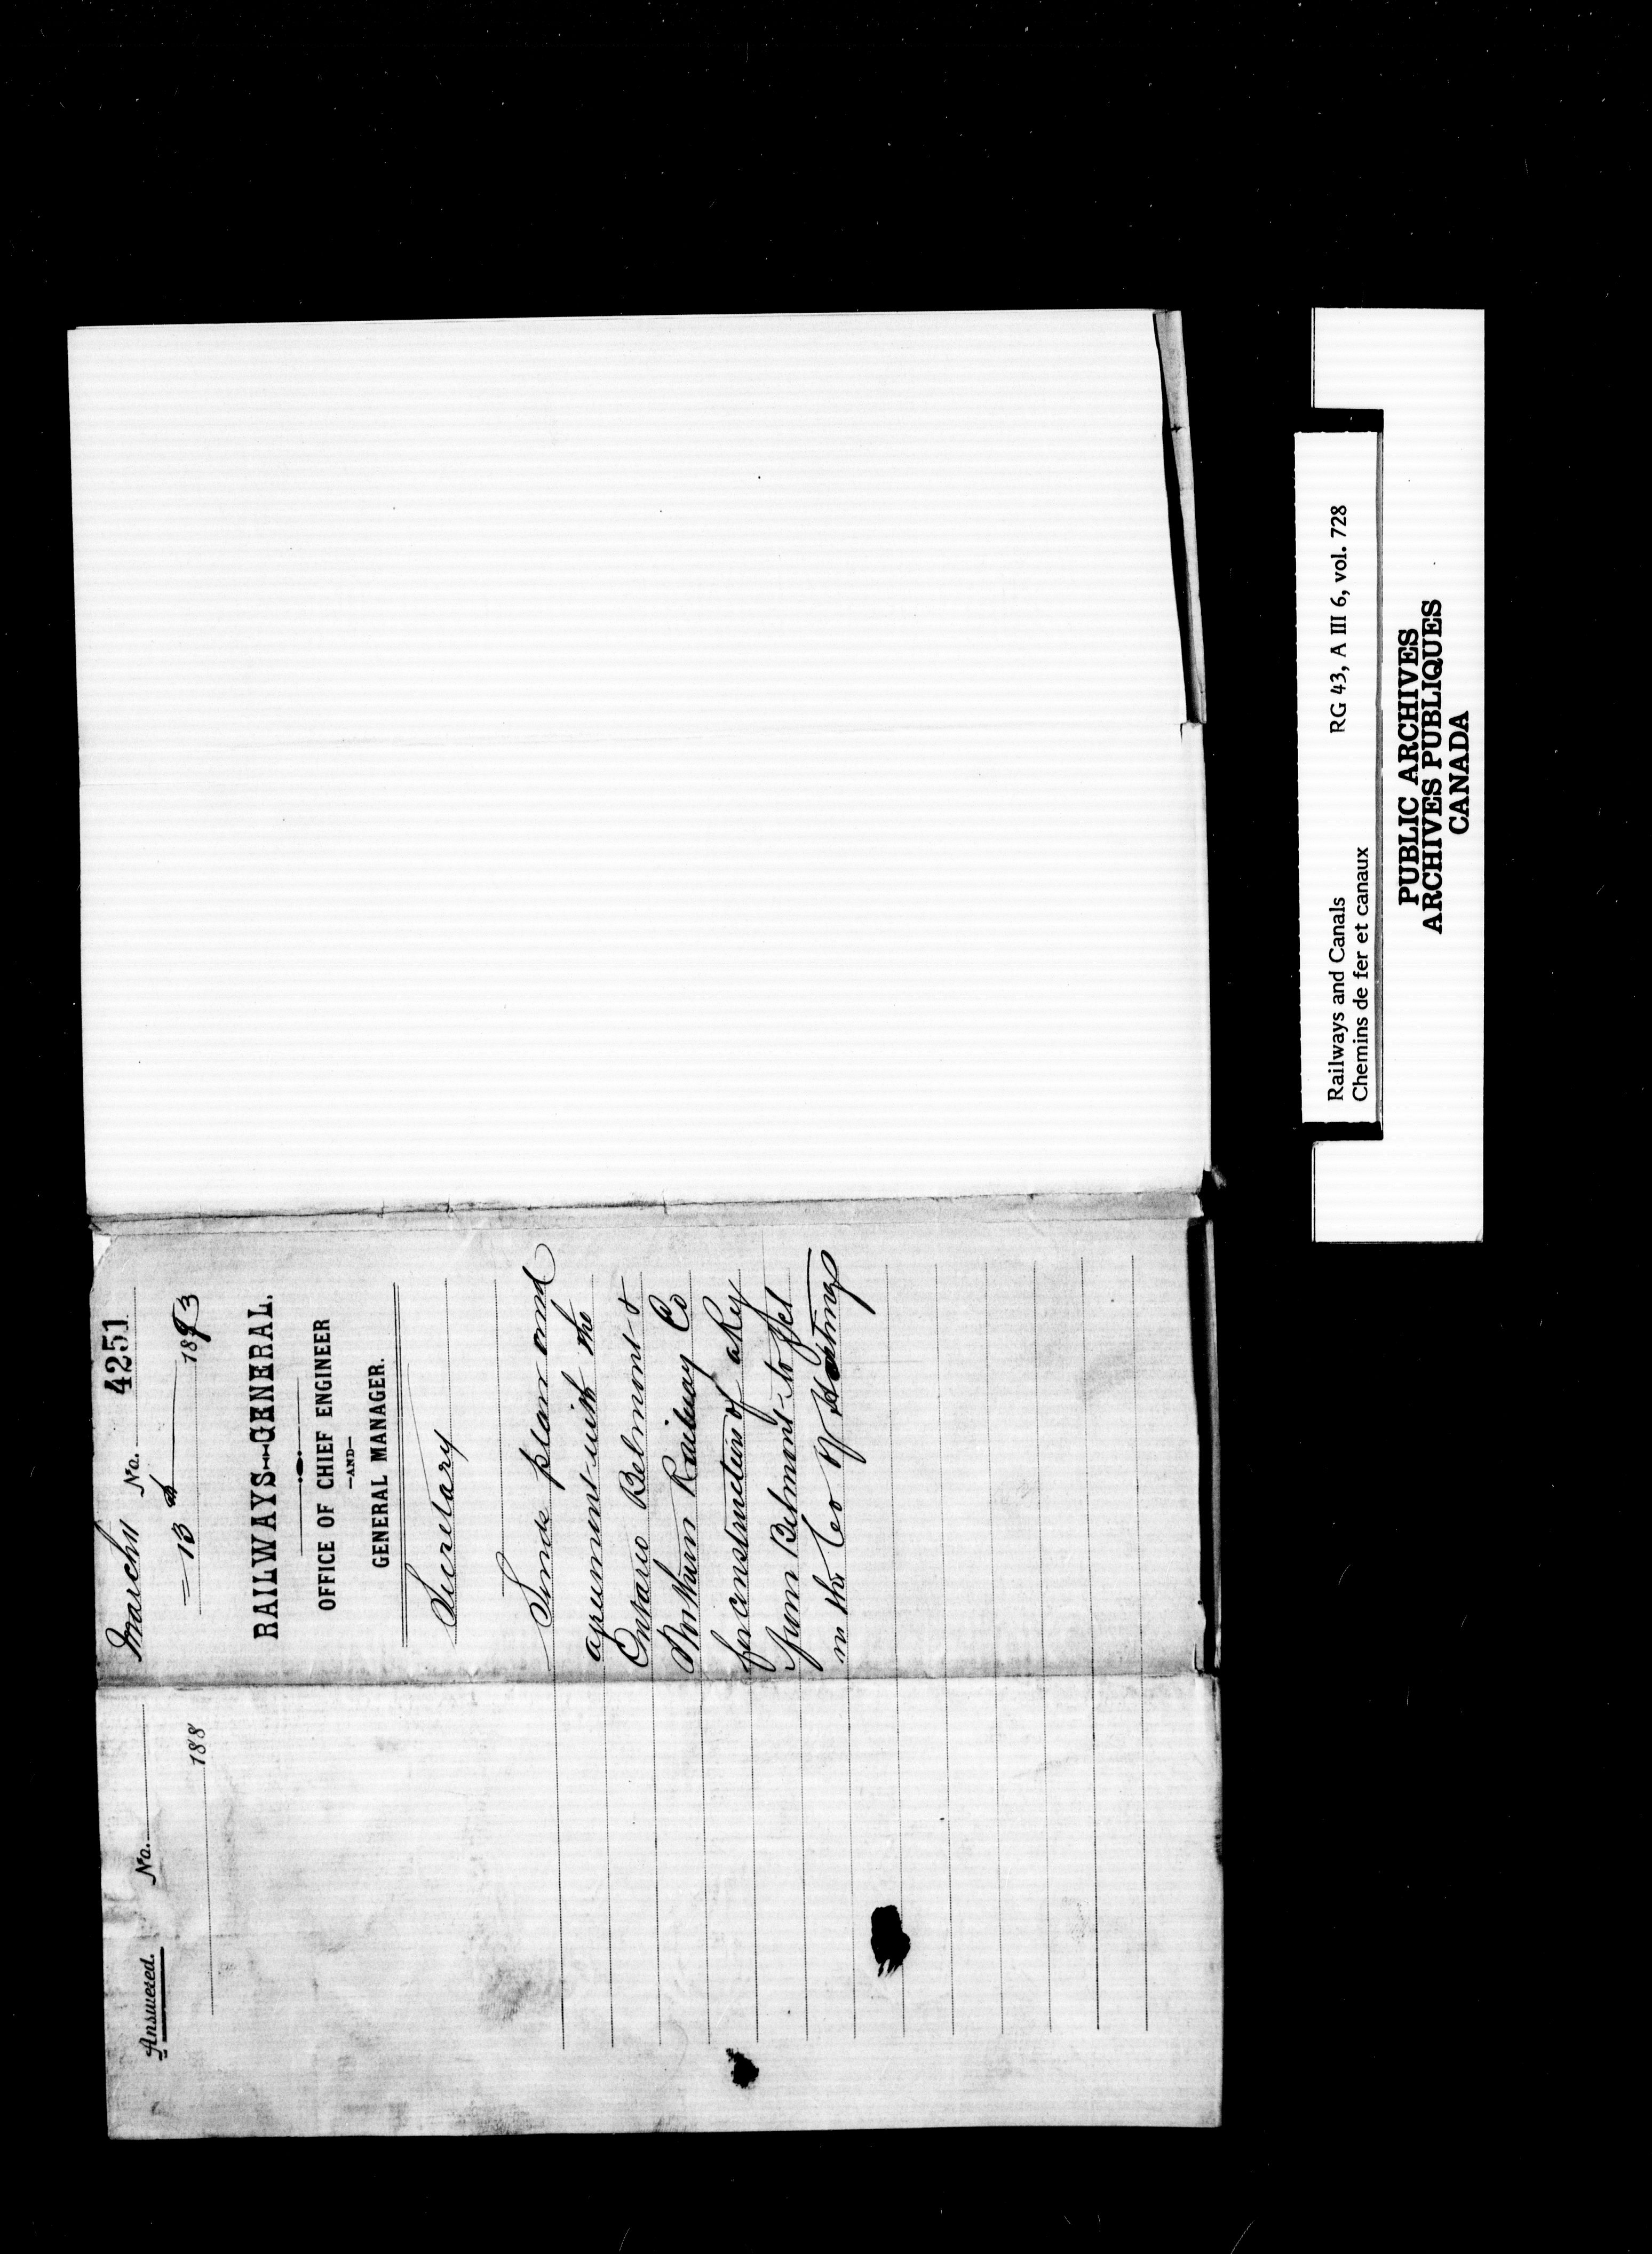 Answered. No.
188
March No. 4251
13th 1893
RAILWAYS--GENERAL.
OFFICE OF CHIEF ENGINEER
—AND—
GENERAL MANAGER.
Secretary
Sends plan and
agreement with the
Ontario Belmont &
Northern Railway Co
for construction of a Ry
from Belmont to
in the Co of Hastings
Railways and Canals RG 43, A III 6, vol. 728
Chemins de fer et canaux
PUBLIC ARCHIVES
ARCHIVES PUBLIQUES
CANADA